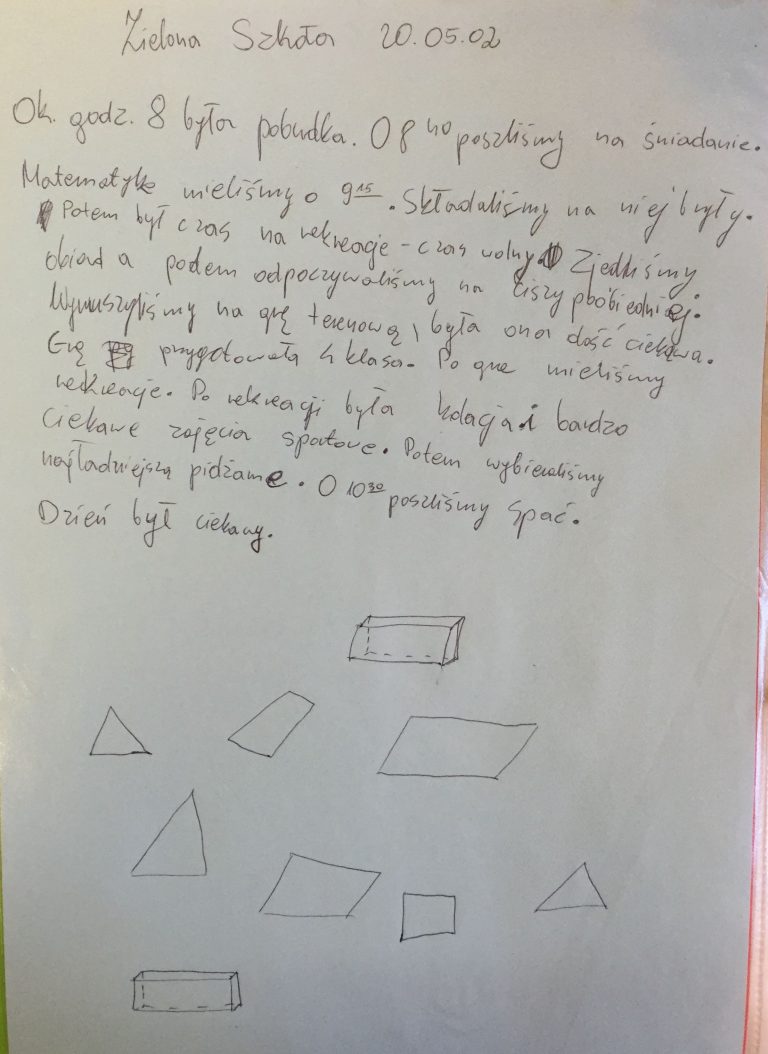 Zielona Szkoła 20.05.02
Ok. godz. 8 była pobudka. O 8 40 poszliśmy na śniadanie.
Matematykę mieliśmy o 9 15. Składaliśmy na niej bryły.
Potem był czas na rekreacje - czas wolny. Zjedliśmy
obiad a podem odpoczywaliśmy na ciszy poobiedniej.
Wyruszyliśmy na grę terenową, była ona dość ciekawa.
Grę przygotowała 4 klasa. Po grze mieliśmy
rekreacje. Po rekreacji była kolacja i bardzo
ciekawe zajęcia sportowe. Potem wybieraliśmy
najładniejszą pidżame. O 10 30 poszliśmy spać.
Dzień był ciekawy.